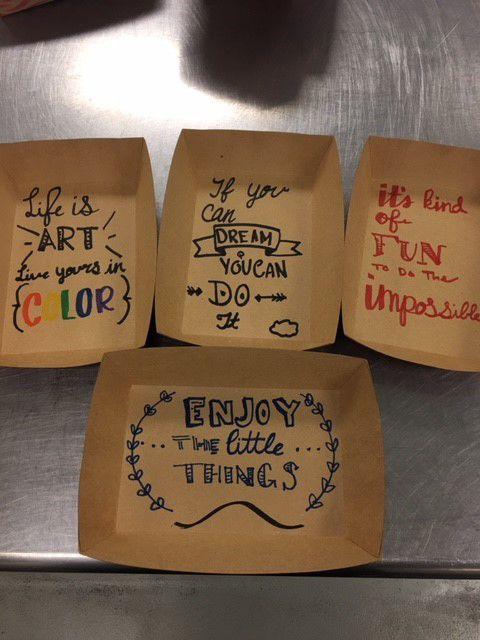 Life is
ART
Live yours in
{COLOR}
If you
can
DREAM
YOU CAN
DO
It
it's kind
of
FUN
TO DO The
impossible
ENJOY
...THE little...
THINGS